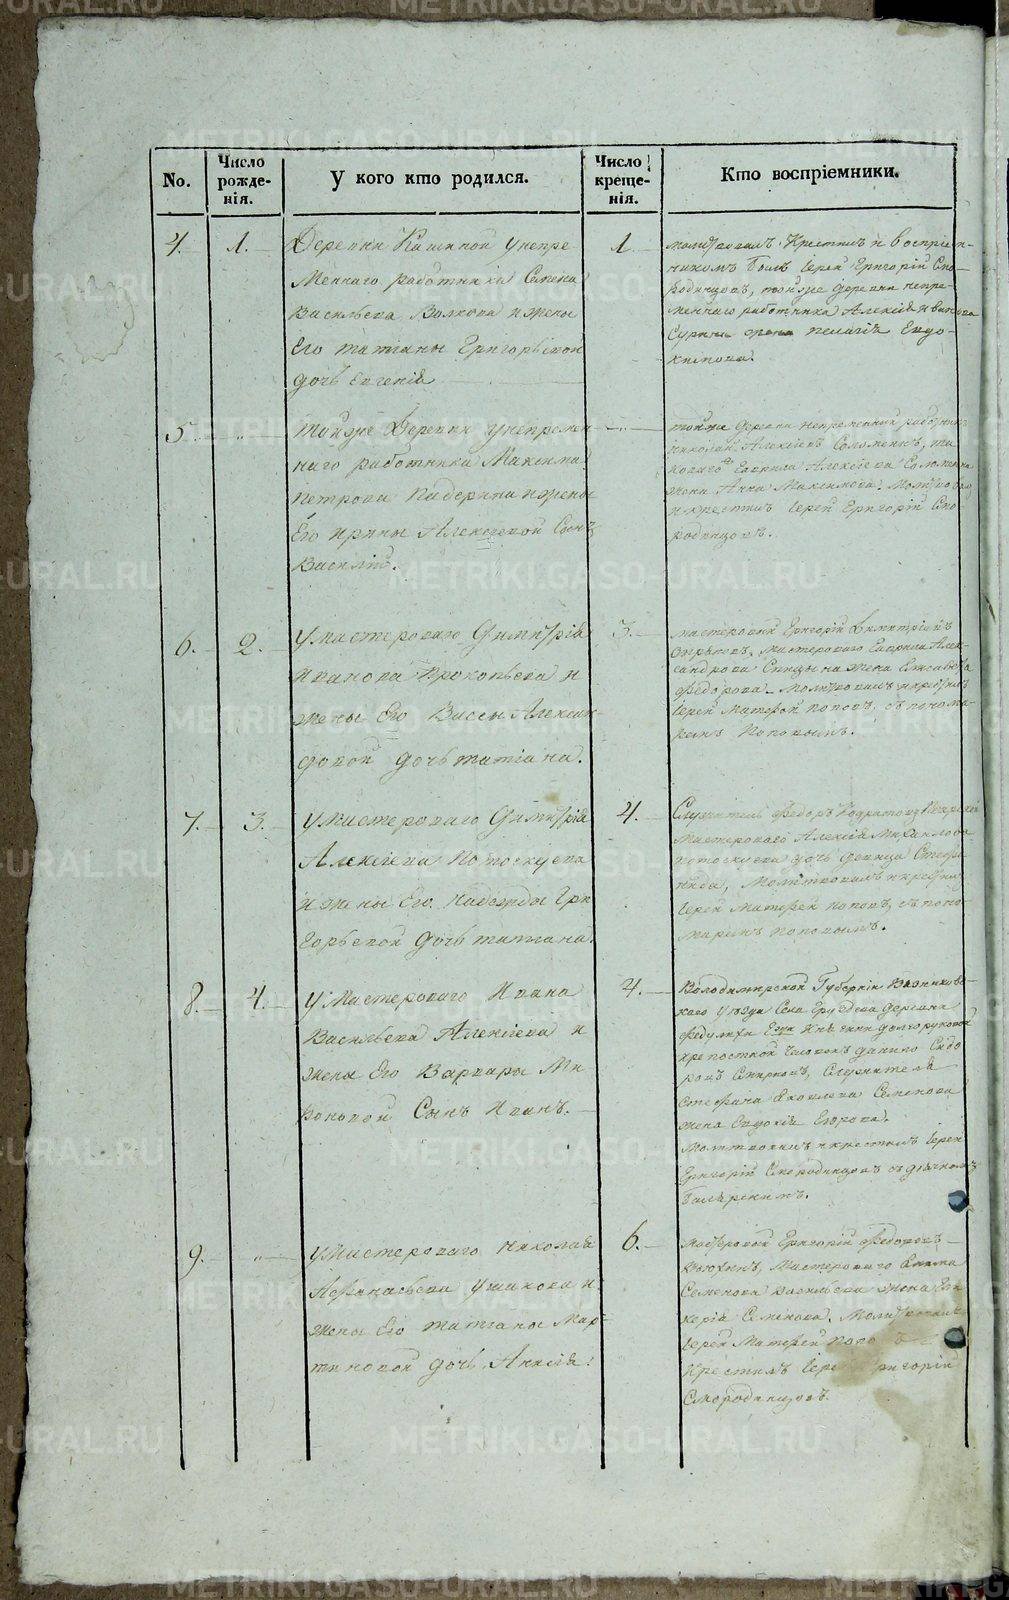 No.
Число рожде-нія.
У кого кто родился.
Число креще-нія.
Кто воспріемники.
4. 1.
Деревни Кашиной у непре
менного работника Семена
Васильева Волкова и жены
Его татианы Григорьевой
дочь Евгенія
1
молитвовалъ Крестилъ и воспріем-
никомъ былъ Іерей Григорій Смо-
родинцовъ, тойже деревни непре-
менного работника Алексія
жена пелагія Евдо-
кимова.
5.
тойже Деревни у непремен-
наго работника Максима
Петрова и жены
Его ирины Алексіевой Сынъ
Василій.
тойже деревни непременный работник
николай Алексіевъ Соломеинъ, та
коваго Гаврила Алексіева Соломеина
жена Анна Максимова. Молитвовал
и крестилъ Іерей Григорій Смо-
родинцовъ.
6. 2.
У мастероваго Димитрія
Иванова Прокопьева и
жены Его Вассы Алексан-
дровой дочь татіана.
3.
мастеровой Григорій Димитріевъ
мастероваго Гаврила Алек-
сандрова Спицына жена Елисавета
Федорова. Молитвовалъ и крестилъ
Іерей Матфей поповъ, съ понома-
ремъ Поповымъ.
7. 3.
У Мастероваго Димитрія
Алексіева Потоскуева
и жены Его Надежды Гри
горьевой дочь татиана.
4.
Служитель Федоръ
Мастероваго Алексія Михайлова
потоскуева дочь девица Стефа-
нида, Молитвовалъ и крестил
Іерей Матфей поповъ, съ поно-
маремъ поповымъ.
8. 4.
У Мастероваго Ивана
Васильева Алексіева и
жены Его Варвары Ми
роновой Сынъ Иванъ.
4.
Володимирской Губерніи Вязниковс-
каго уезда Села Груздева деревни
Федулихи долгоруковой
крепостной человекъ данило Сидо
ровъ Смирновъ, Служителя
Стефана Яковлева Семенова
жена Евдокія Егорова.
Молитвовалъ и крестилъ Іерей
Григорій Смородинцовъ съ дьячкомъ
9.
У Мастероваго Николая
Афанасьева Ушакова и
жены Его татианы Мар-
тиновой дочь Анисія.
6.
мастеровой Григорій Федоровъ
Мастероваго
Семенова васильева жена Гли
керія Семенова. Молитвовалъ
Іерей Матфей попо
Крестилъ Іере ригорій
Смородинцовъ.
METRIKI.GASO-URAL.RU